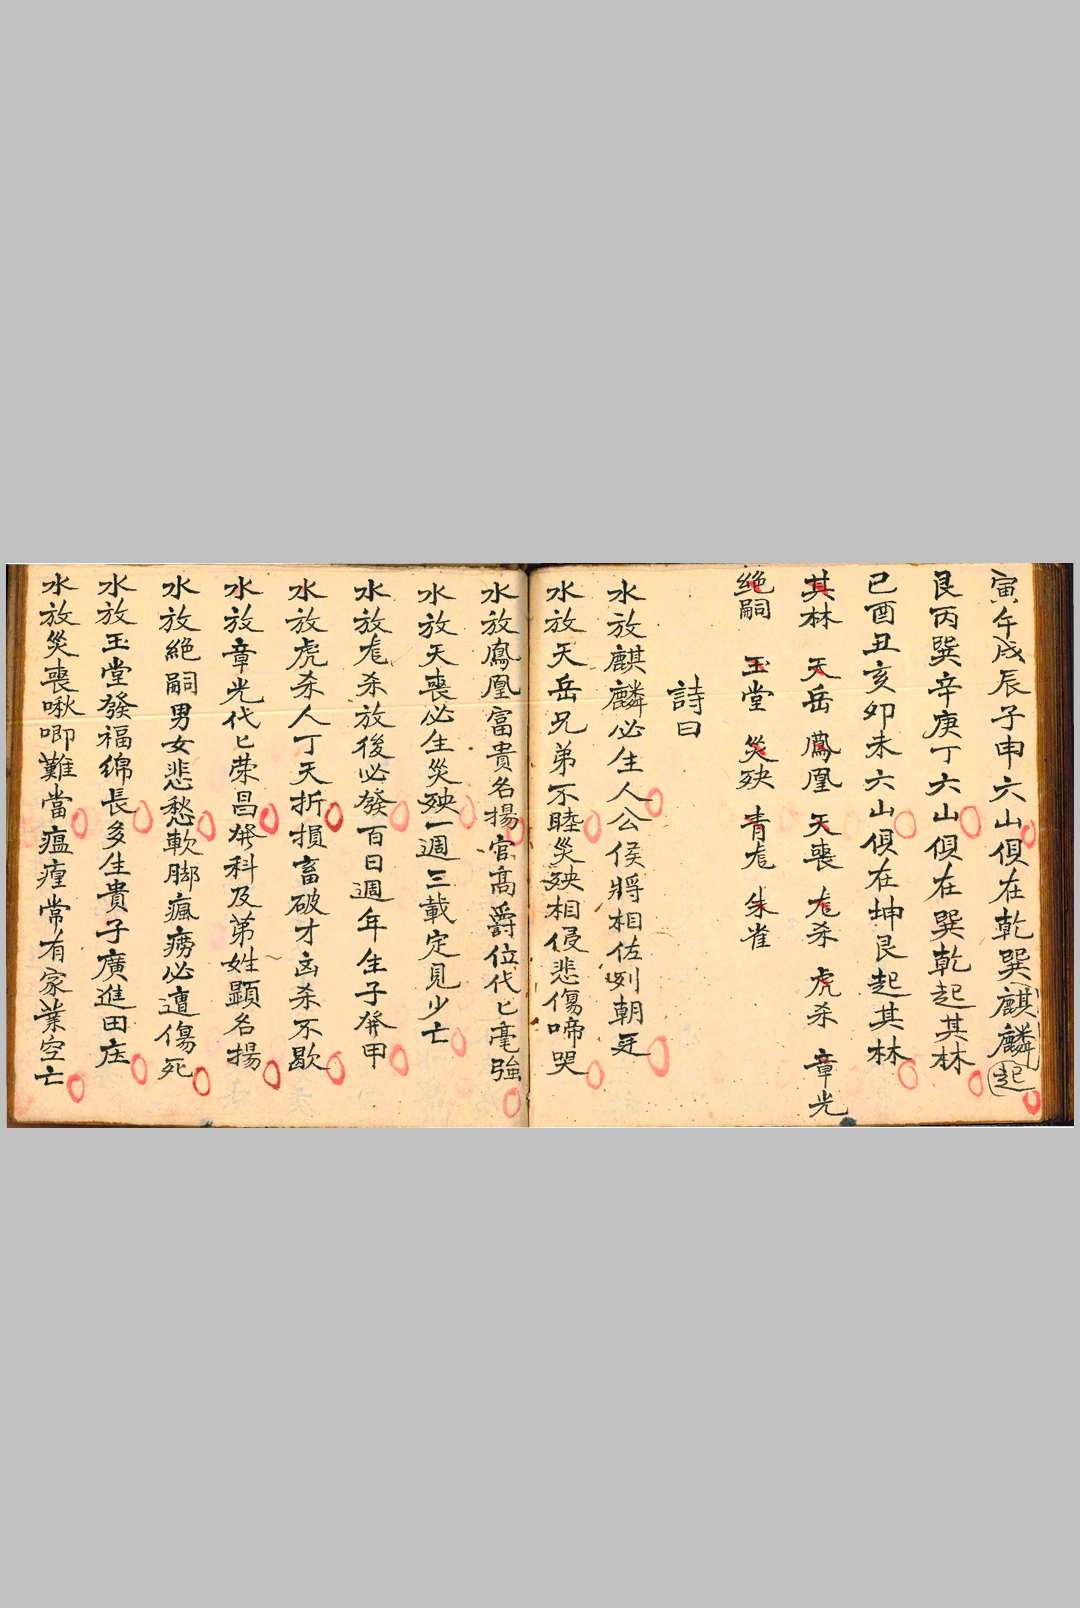 寅午戌辰子申六山俱在乾巽麒麟起
艮丙巽辛庚丁六山俱在巽乾起其林
巳酉丑亥卯未六山俱在坤艮起其林
其林 天岳 鳳凰 天喪 尨杀 虎杀 章光
絕嗣 玉堂 災殃 青尨 朱雀
詩曰
水放麒麟必生人公侯將相佐列朝廷
水放天岳兄弟不睦災殃相侵悲傷啼哭
水放鳳凰富貴名揚官髙爵位代匕毫強
水放天喪必生災殃一週三載定見少亡
水放尨杀放後必發百日週年生子發甲
水放虎杀人丁夭折損畜破才凶杀不歇
水放章光代匕荣昌發科及第姓顕名揚
水放絕嗣男女悲愁軟脚瘋癆必遭傷死
水放玉堂發福綿長多生貴子廣進田庄
水放災喪啾唧難當瘟瘴常有家業空亡